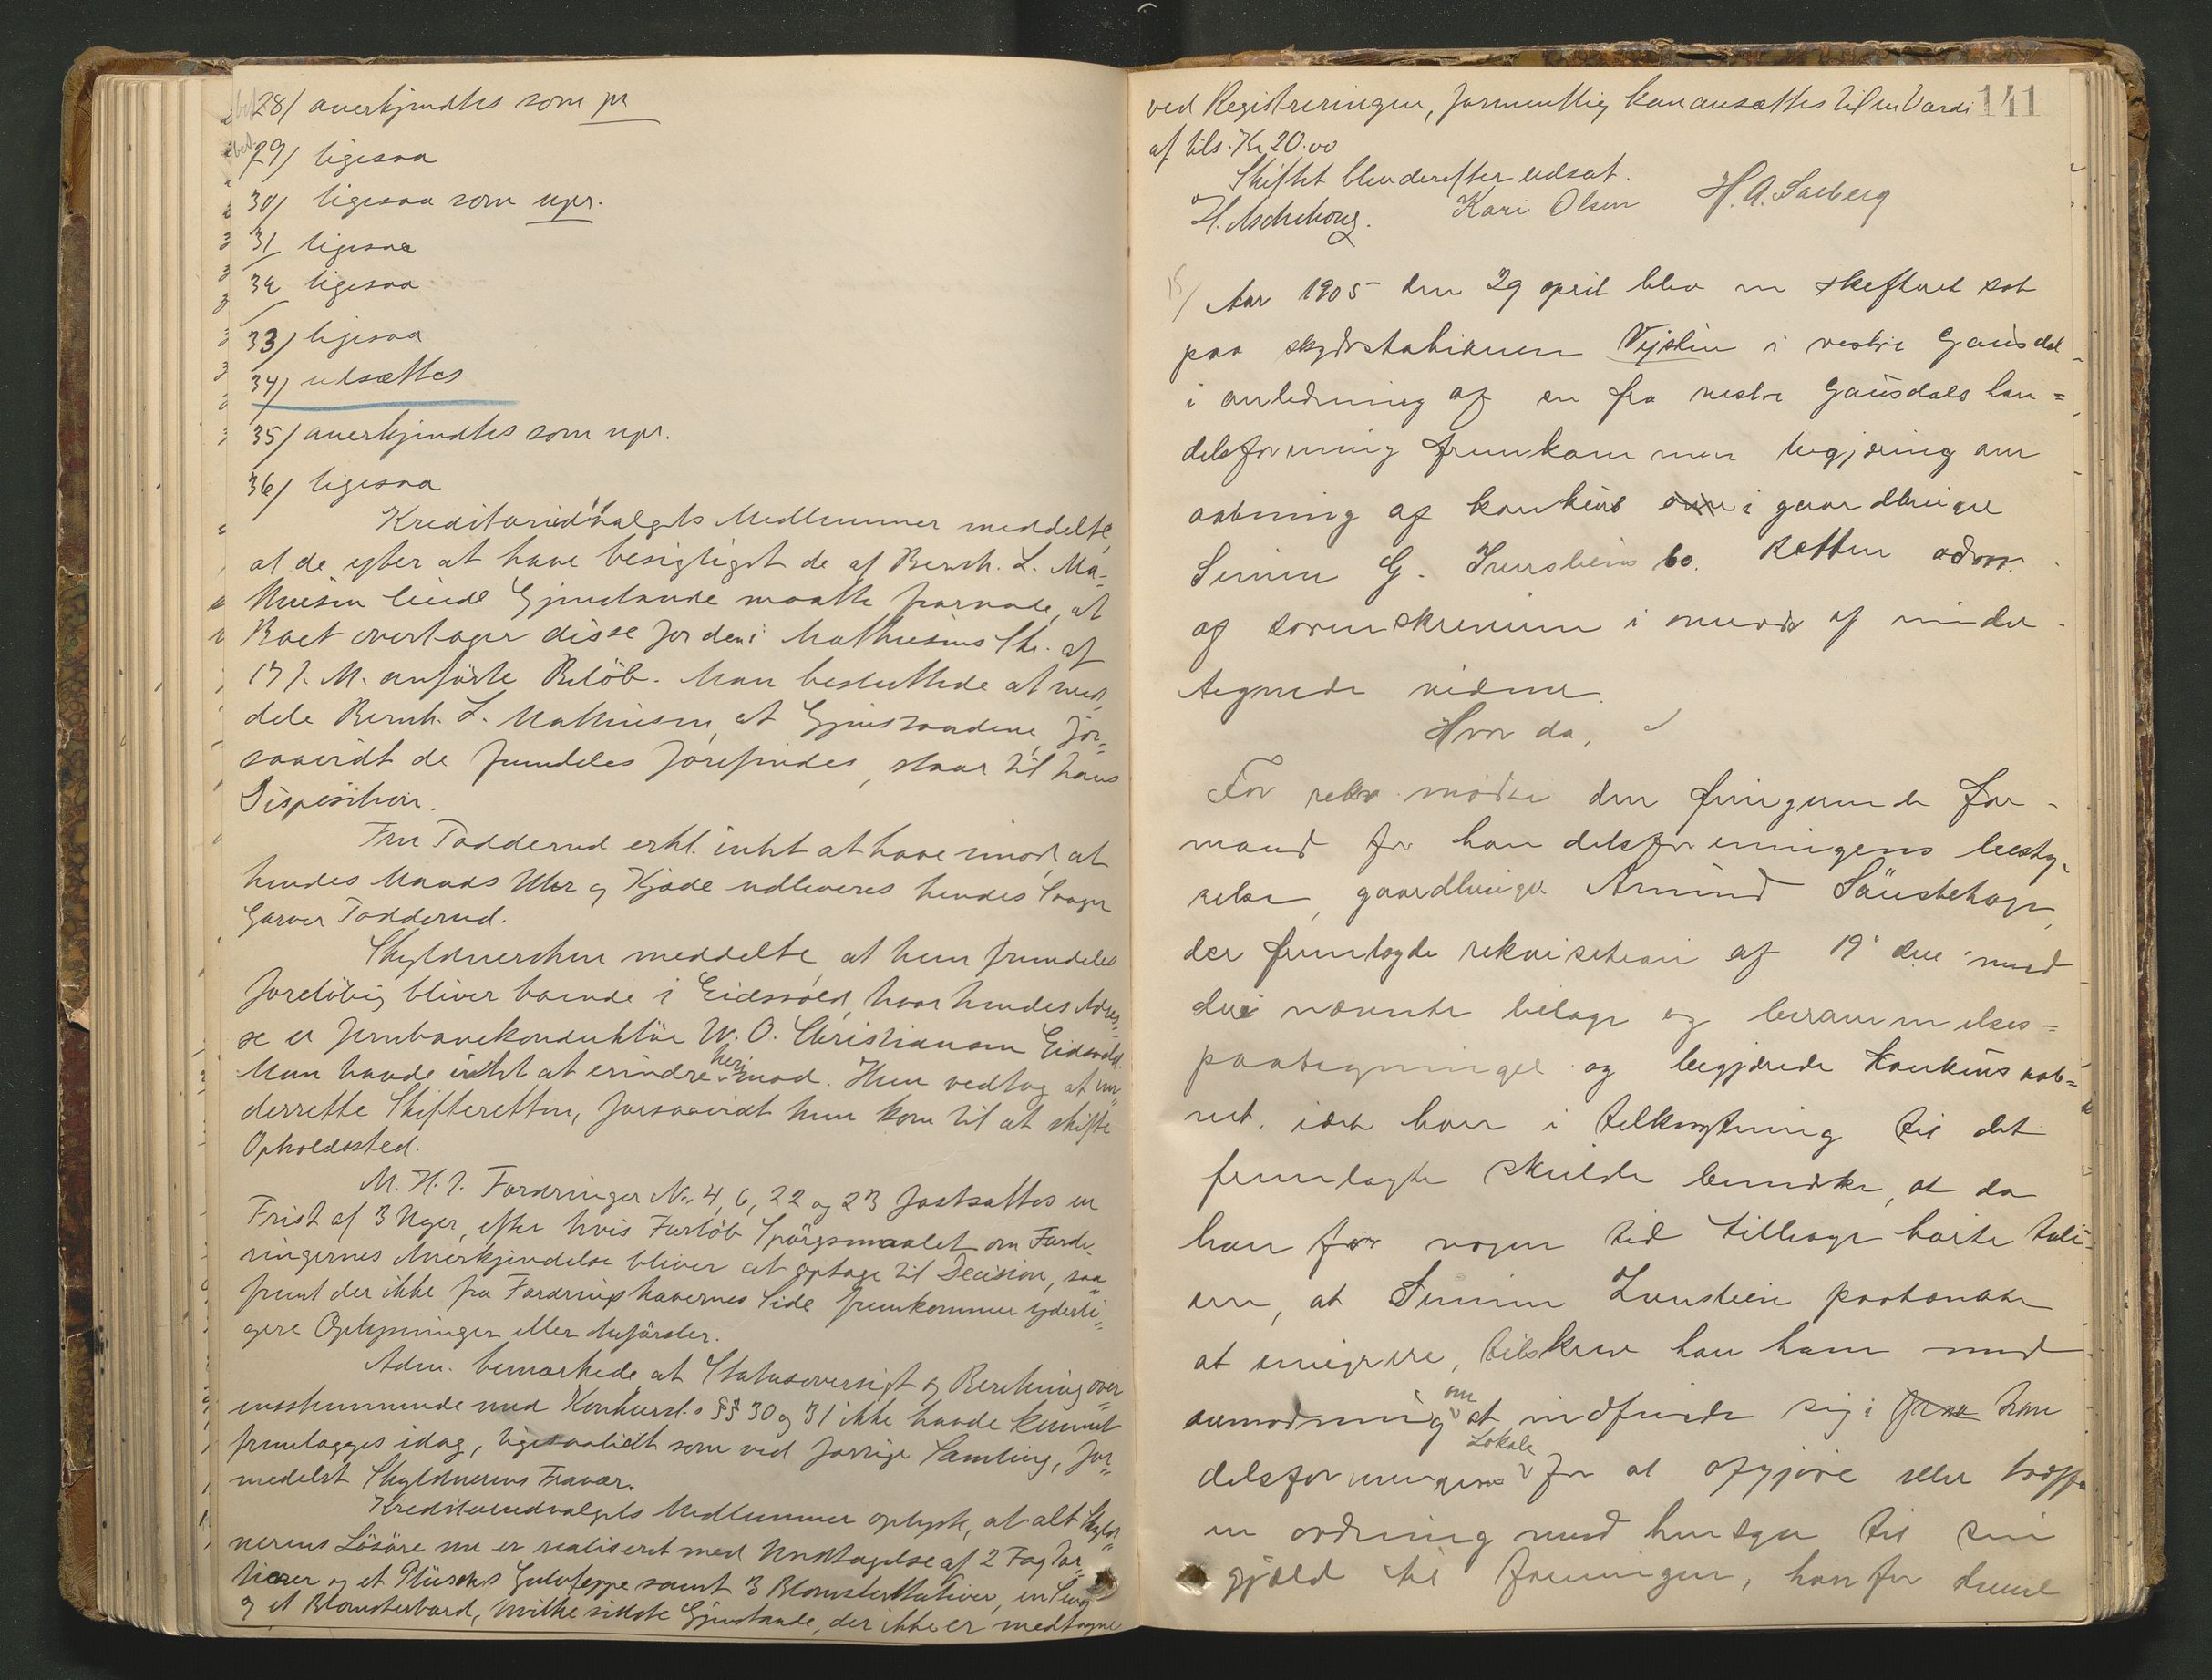 28/ anerkjendtes som pr
29/ ligesaa
30/ ligesaa som upr.
31 ligesaa
32 ligesaa
33/ ligesaa
34/ udsættes
35/ anerkjendtes som upr.
36/ ligesaa
Kreditorudvalgets Medlemmer meddelte,
at de efter at have besigtiget de af Bernh. L. Ma-
thiesen leiede Gjenstande maatte fraraade, at
Boet overtager disse for den i Mathiesens Skr. af
17 f. M. anførte Beløb. Man besluttede at med-
dele Bernh. L. Mathiesen, at Gjenstandene, for-
saavidt de fremdeles forefindes, staar til hans
Disposition.
Fru Todderud erkl. intet at have imod, at
hendes Mands Uhr og Kjæde udleveres hendes Svoger
Garver Todderud.
Skyldnersken meddelte, at hun fremdeles
foreløbig bliver boende i Eidsvold, hvor hendes Adres-
se er Jernbanekonduktør W. O. Christiansen Eidsvold.
Man havde intet at erindre herimod. Hun vedtog at un-
derrette Skifteretten, forsaavidt hun kom til at skifte
Opholdssted.
M. H. t. Fordringer No. 4, 6, 22 og 23 fastsattes en
Frist af 3 Uger, efter hvis Forløb Spørgsmaalet om Ford-
ringernes Anerkjendelse bliver at optage til Decision, saa-
fremt der ikke fra Fordringshavernes Side fremkommer yderli-
gere Oplysninger eller Anførsler.
Adm. bemærkede at Statusoversigt og Beretning over-
ensstemmende med Konkursl.s §§ 30 og 31 ikke havde kunnet
fremlægges idag, ligesaalidt som ved forrige Samling, for-
medelst Skyldnerens Fravær.
Kreditorudvalgets Medlemmer oplyste, at alt Skyld-
nerens Løsøre nu er realiseret med Undtagelse af 2 Fag Por-
tierer og et Plüschs Gulvteppe samt 3 Blomsterstativer, en Seng
og et Blomsterbord, hvilke sidste Gjenstande, der ikke er medtagne
141
ved Registreringen, formentlig kan ansættes til en Værdi
af tils. Kr 20.00
Skiftet blev derefter udsat.
H. Aschehoug. Kari Olsen H. A. Solberg
15/ Aar 1905 den 29 april blev en skifteret sat
paa skydsstationen Vejsten i vestre Gausdal
i anledning af en fra vestre Gausdals han=
delsforening fremkommen begjæring om
aabning af konkurs i gaardbruger
Simen G. Iversliens bo. Retten adm.
af sorenskriveren i overvær af under-
tegnede vidner.
Hvor da,
For rekv. mødte den fungerende for-
mand for handelsforeningens besty-
relse, gaardbruger Amund Saustehage,
der fremlagde rekvisition af 19 ds. med
deri nævnte bilage og berammelses=
paategninger og begjærede Konkurs aab=
net, idet han i tilknytning til det
fremlagte skulde bemærke, at da
han for nogen tid tilbage hørte tale
om, at Simen Iverslien paatænkte
at emigrere, tilskrev han ham med
anmodning om at indfinde sig i han
delsforeningens Lokale for at opgjøre eller træffe
en ordning med hensyn til sin
gjæld til foreningen, han for